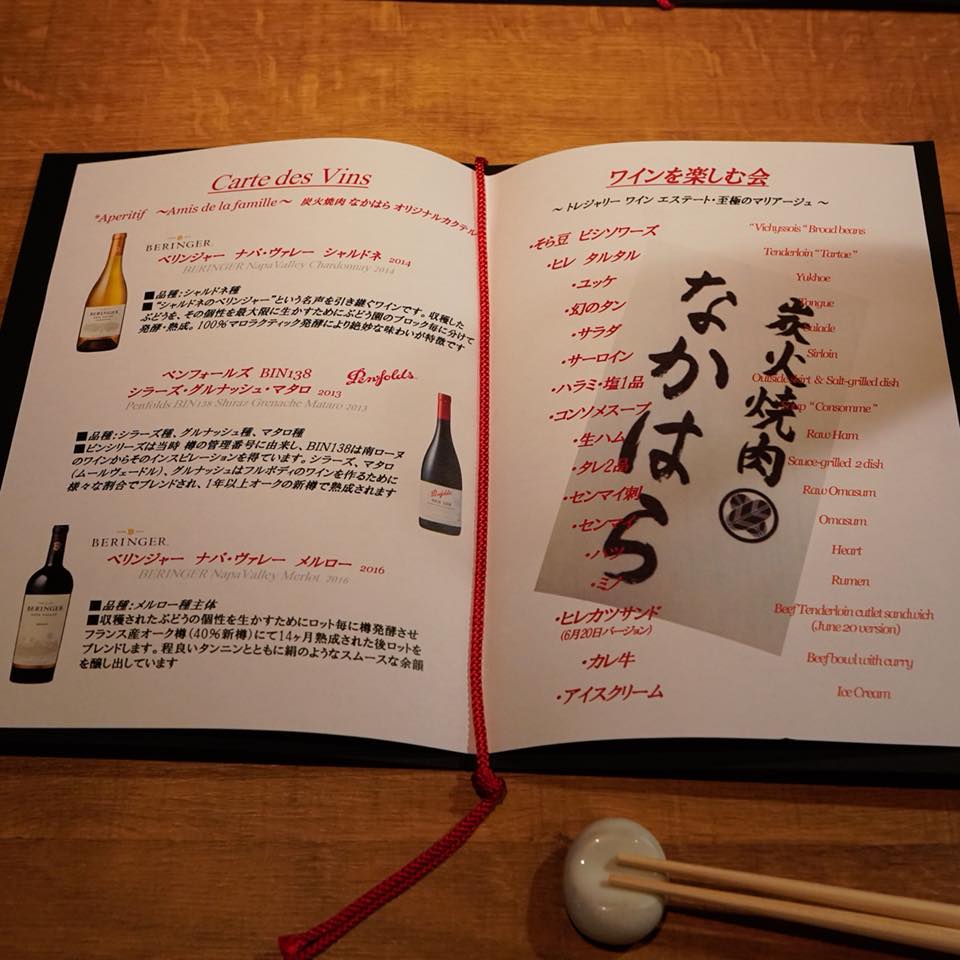 Carte des Vins
*Aperitif ～Amis de la famille～ 炭火焼肉 なかはら オリジナルカクテル
BERINGER.
ベリンジャー ナパ・ヴァレー シャルドネ 2014
BERINGER NapaValley Chardonnay 2014
■品種：シャルドネ種
■“シャルドネのベリンジャー”という名声を引き継ぐワインです。収穫した
ぶどうを、その個性を最大限に生かすためにぶどう園のブロック毎に分けて
発酵・熟成。100%マロラクティック発酵により絶妙な味わいが特徴です
BERINGER
ペンフォールズ BIN138
Penfolds
シラーズ・グルナッシュ・マタロ 2013
Penfolds BIN138 Shiraz Grenache Mataro 2013
■品種：シラーズ種、グルナッシュ種、マタロ種
■ビンシリーズは当時 樽の管理番号に由来し、BIN138は南ローヌ
のワインからそのインスピレーションを得ています。シラーズ、マタロ
（ムールヴェードル）、グルナッシュはフルボディのワインを作るために
様々な割合でブレンドされ、1年以上オークの新樽で熟成されます
Penfolds
BERINGER.
ベリンジャー ナパ・ヴァレー メルロー 2016
BERINGER NapaValley Merlot 2016
■品種：メルロー種主体
■収穫されたぶどうの個性を生かすためにロット毎に樽発酵させ
フランス産オーク樽（40%新樽）にて14ヶ月熟成された後ロットを
ブレンドします。程良いタンニンとともに絹のようなスムースな余韻
を醸し出しています
BERINGER
ワインを楽しむ会
～ トレジャリー ワイン エステート・至極のマリアージュ ～
・そら豆 ビシソワーズ “Vichyssois“ Broad beans
・ヒレ タルタル Tenderloin “Tartae”
・ユッケ Yukhoe
・幻のタン Tongue
・サラダ Salade
・サーロイン Sirloin
・ハラミ・塩1品 Outside skirt & Salt-grilled dish
・コンソメスープ Soup “Consomme”
・生ハム Raw Ham
・タレ2品 Sauce-grilled 2 dish
・センマイ刺 Raw Omasum
・センマイ Omasum
・ハツ Heart
・ミノ Rumen
・ヒレカツサンド Beef Tenderloin cutlet sandwich
(6月20日バージョン) (June 20 version)
・カレ牛 Beef bowl with curry
・アイスクリーム Ice Cream
炭火焼肉
なかはら